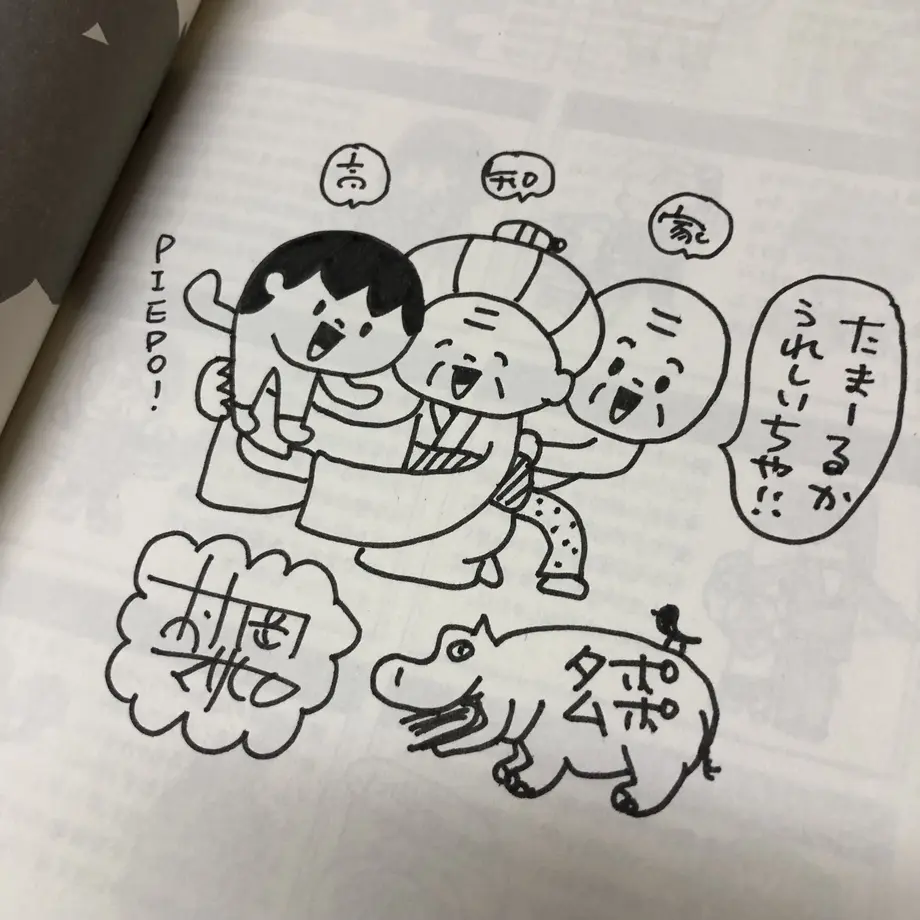 高
知
家
PIEPO!
たまーるか
うれしいちゃ!!
ポポ
タム